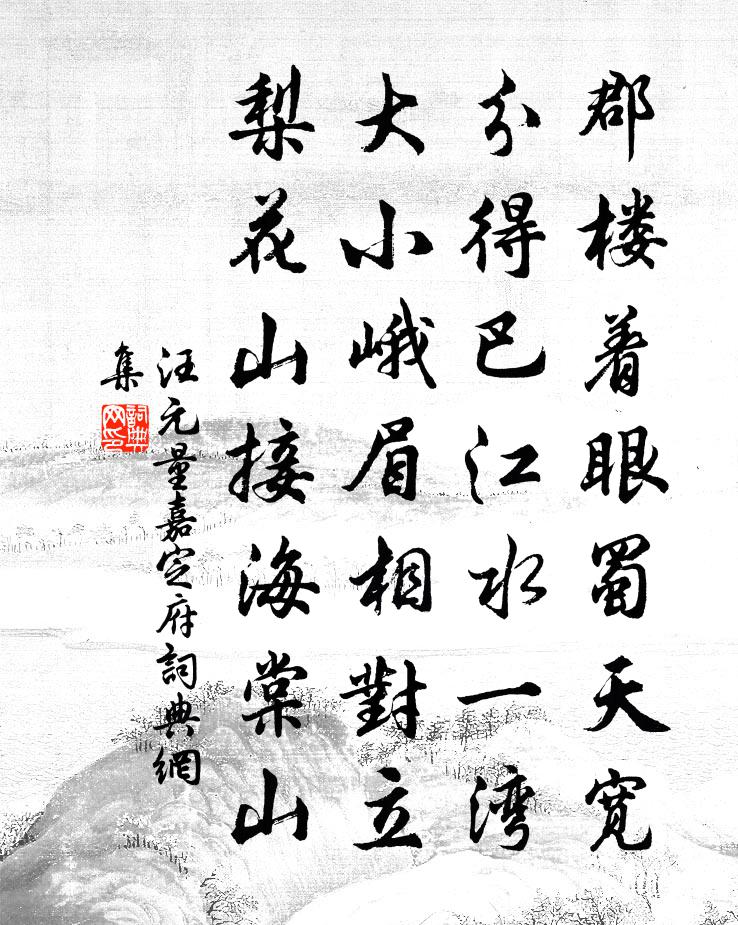 郡楼着眼蜀天宽
分得巴江水一湾
大小峨眉相對立
梨花山接海棠山
汪元量嘉定府詞典網
集
詞典网印